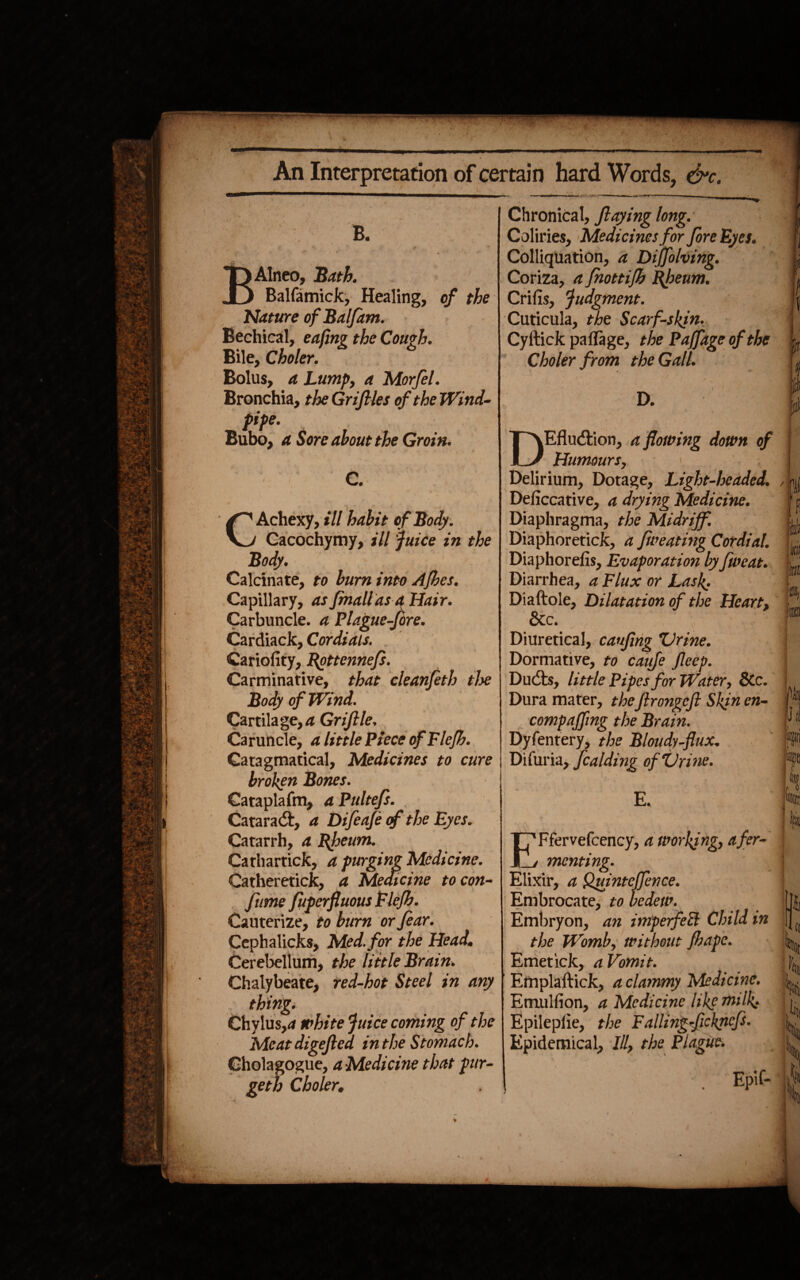 An Interpretation of certain hard Words, &c.
B.
BAlneo, Bath.
Balſamick, Healing, of the
Nature of Balſam.
Bechical, eaſing the Cough.
Bile, Choler.
Bolus, a Lump, a Morſel.
Bronchia, the Griſtles of the Wind-
pipe.
Bubo, a Sore about the Groin.
C.
CAchexy, ill habit of Body.
Cacochymy, ill Juice in the
Body.
Calcinate, to burn into Aſhes.
Capillary, as ſmall as a Hair.
Carbuncle. a Plague-ſore.
Cardiack, Cordials.
Carioſity, Rottenneſs.
Carminative, that cleanſeth the
Body of Wind.
Cartilage, a Griſtle.
Caruncle, a little Piece of Fleſh.
Catagmatical, Medicines to cure
broken Bones.
Cataplaſm, a Pulteſs.
Cataract, a Diſeaſe of the Eyes.
Catarrh, a Rheum.
Cathartick, a purging Medicine.
Catheretick, a Medicine to con-
ſume ſuperfluous Fleſh.
Cauterize, to burn or ſear.
Cephalicks, Med. for the Head.
Cerebellum, the little Brain.
Chalybeate, red-hot Steel in any
thing.
Chylus, a white Juice coming of the
Meat digeſted in the Stomach.
Cholagogue, a Medicine that pur-
geth Choler.
Chronical, ſtaying long.
Coliries, Medicines for ſore Eyes.
Colliquation, a Diſſolving.
Coriza, a ſnottiſh Rheum.
Criſis, Judgment.
Cuticula, the Scarf-skin.
Cyſtick paſſage, the Paſſage of the
Choler from the Gall.
D.
DEfluction, a flowing down of
Humours,
Delirium, Dotage, Light-headed.
Deſiccative, a drying Medicine.
Diaphragma, the Midriff.
Diaphoretick, a ſweating Cordial.
Diaphoreſis, Evaporation by ſweat.
Diarrhea, a Flux or Lask.
Diaſtole, Dilatation of the Heart,
&c.
Diuretical, cauſing Urine.
Dormative, to cauſe ſleep.
Ducts, little Pipes for Water, &c.
Dura mater, the ſtrongeſt Skin en-
compaſſing the Brain.
Dyſentery, the Bloudy-flux.
Diſuria, ſcalding of Urine.
E.
EFferveſcency, a working, a fer-
menting.
Elixir, a Quinteſſence.
Embrocate, to bedew.
Embryon, an imperfect Child in
the Womb, without ſhape.
Emetick, a Vomit.
Emplaſtick, a clammy Medicine.
Emulſion, a Medicine like milk.
Epilepſie, the Falling-ſickneſs.
Epidemical, Ill, the Plague.
Epiſ-